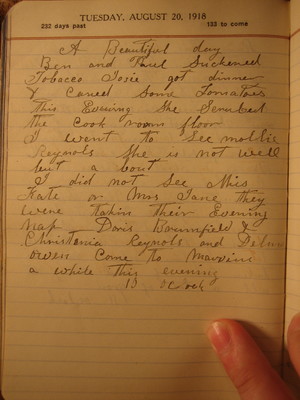 TUESDAY, AUGUST 20, 1918
232 days past 133 to come
A Beautiful day
Ben and Paul Suckened
Tobacco Josie got dinner
& Caned Some Tomatoes
This Evening She Scrubed
the Cook room floor
I went to See mollie
Reynols She is not well
but a bout
I did not See Miss
Kate or Mrs Jane they
were takin their Evening
nap Doris Brumfield &
Christenia Reynols and
owen Come to
a while this evening
O Clock